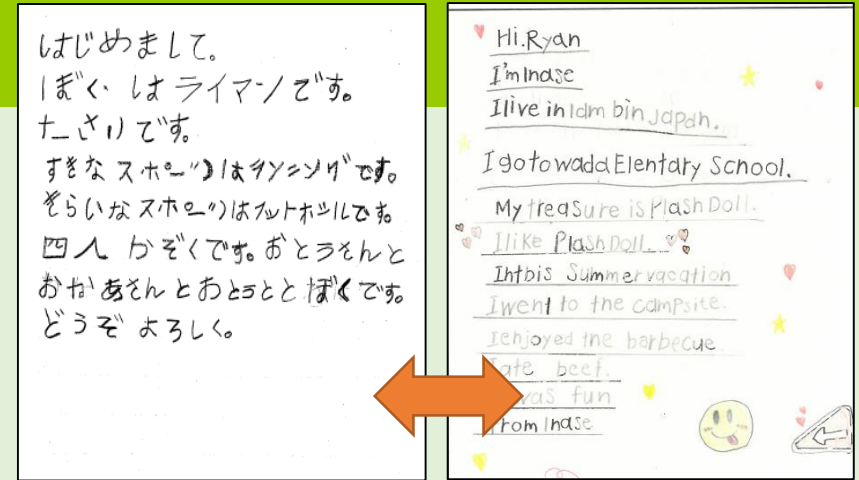 はじめまして。
ぼく は ライマンです。
です。
すきな スポーツはランニングです。
きらいな スポーツはフットボールです。
四人 かぞくです。おとうさんと
おかあさんとおとうとと ぼくです。
どうぞ よろしく。
Hi.Ryan
I'm Inase
I live in in Japan.
I go to wada Elentary School.
My treasure is Plash Doll.
I like Plash Doll.
Inthis Summer vacation
I went to the campsite.
I enjoyed the barbecue
ate beef.
was fun
from Inase